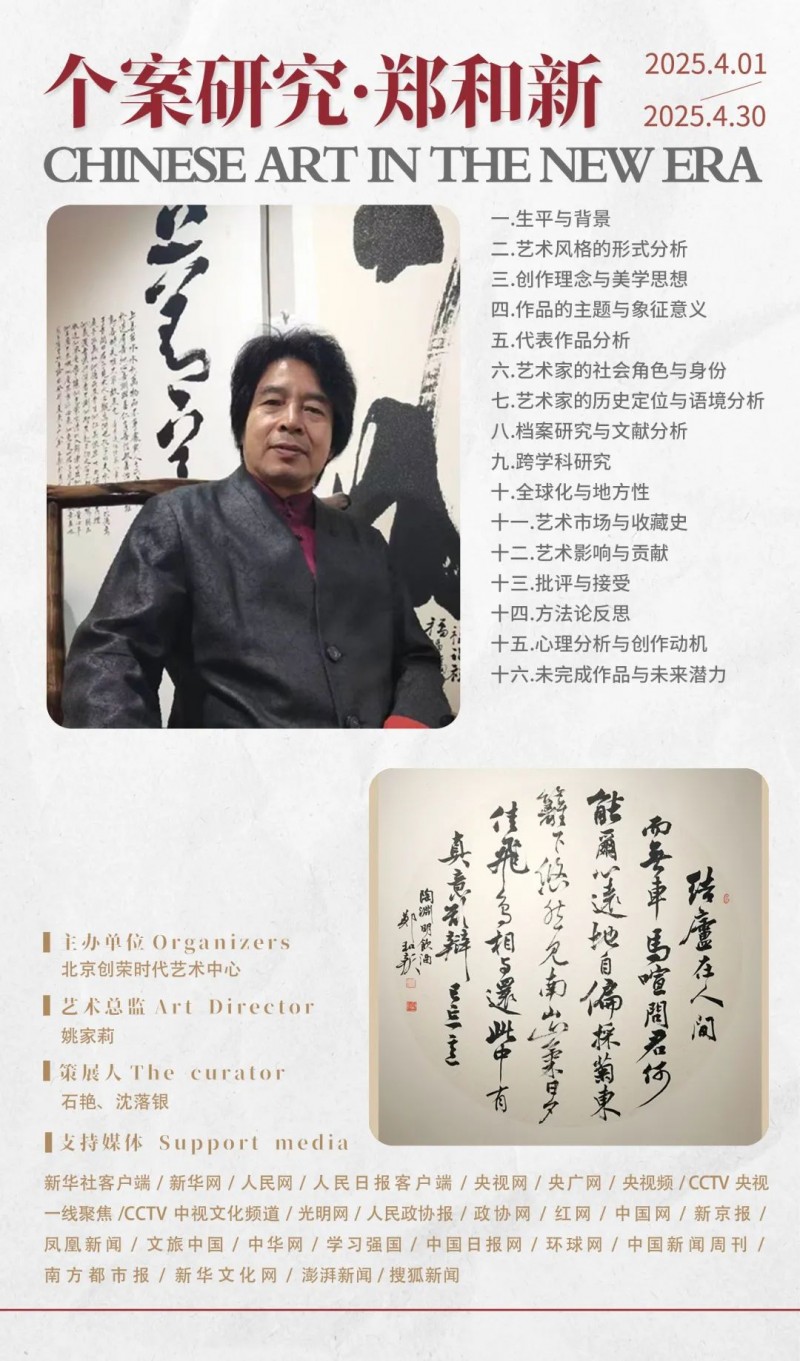 个案研究·郑和新
2025.4.01
2025.4.30
CHINESE ART IN THE NEW ERA
一.生平与背景
二.艺术风格的形式分析
三.创作理念与美学思想
四.作品的主题与象征意义
五.代表作品分析
六.艺术家的社会角色与身份
七.艺术家的历史定位与语境分析
八.档案研究与文献分析
九.跨学科研究
十.全球化与地方性
十一.艺术市场与收藏史
十二.艺术影响与贡献
十三.批评与接受
十四.方法论反思
十五.心理分析与创作动机
十六.未完成作品与未来潜力
结廬在人间
而无車馬喧問君何
能爾心遠地自偏採菊東
籬下悠然见南山山氣日夕
佳飛鸟相与還此中有
真意欲辩已忘言
陶淵明飲酒
郑和新
主办单位 Organizers
北京创荣时代艺术中心
艺术总监 Art Director
姚家莉
策展人 The curator
石艳、沈落银
支持媒体 Support media
新华社客户端 / 新华网 / 人民网 / 人民日报客户端 / 央视网 / 央广网 / 央视频 / CCTV 央视
一线聚焦 /CCTV 中视文化频道 / 光明网 / 人民政协报 / 政协网 / 红网 / 中国网 / 新京报 /
凤凰新闻 / 文旅中国 / 中华网 / 学习强国 / 中国日报网 / 环球网 / 中国新闻周刊 /
南方都市报 / 新华文化网 / 澎湃新闻 / 搜狐新闻